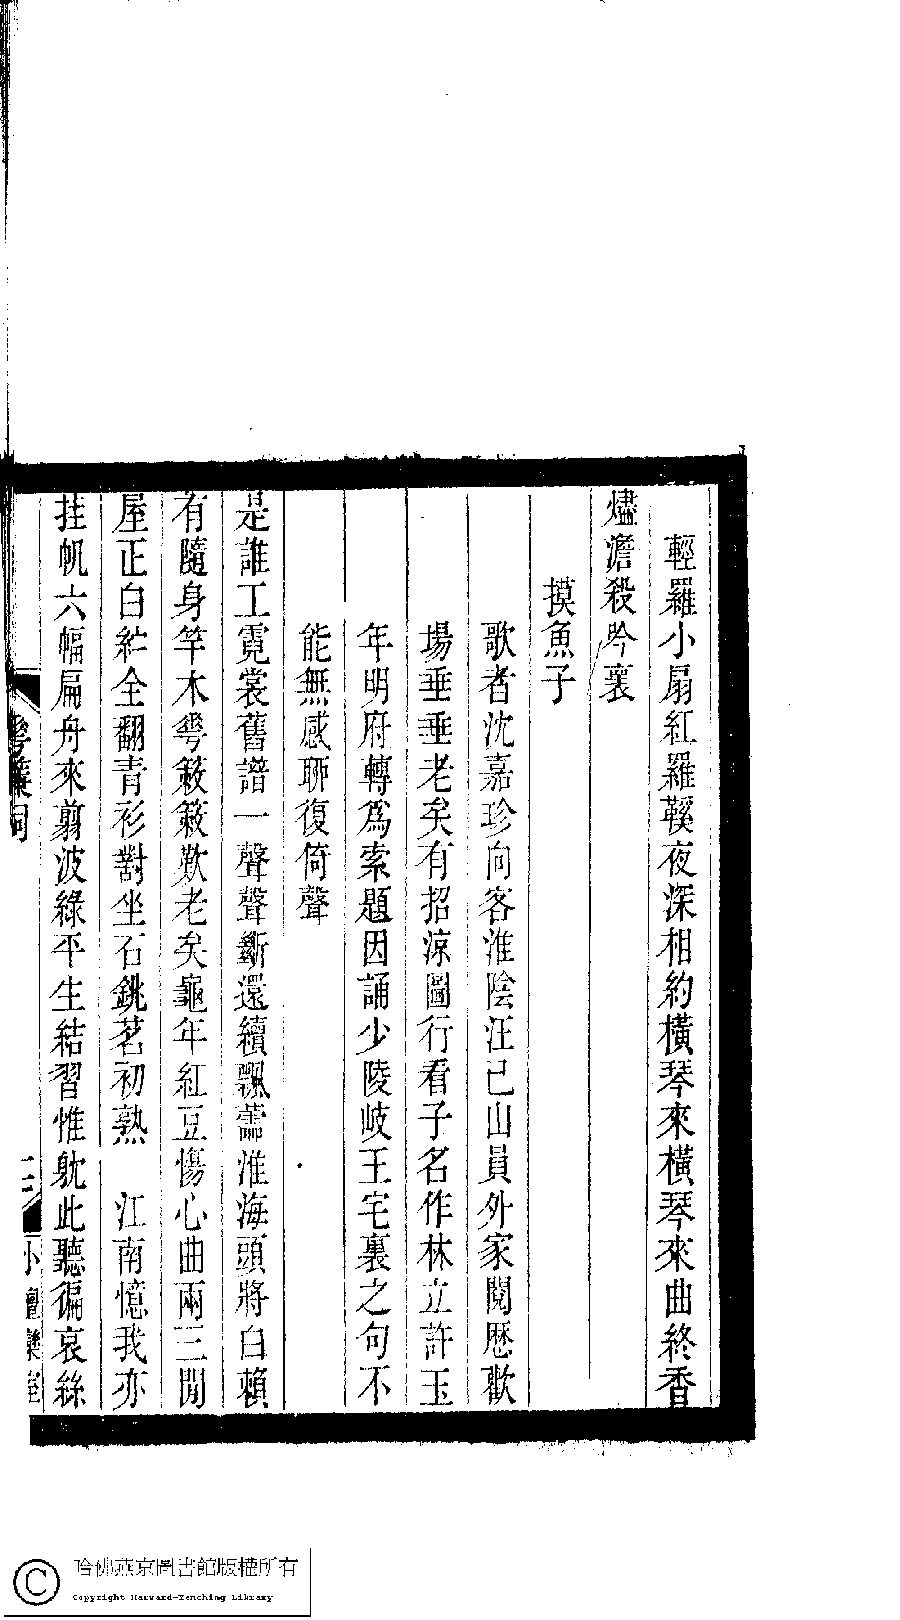 輕羅小扇紅羅鞵夜深相約橫琴來橫琴來曲終香
燼澹殺吟裏
摸魚子
歌者沈嘉珍向客淮陰汪己山員外家閱歷歡
場垂垂老矣有招涼圖行看子名作林立許玉
年明府轉爲索題因誦少陵岐王宅裏之句不
能無感聊復倚聲
是誰工霓裳舊譜一聲聲斷還續飄蕭淮海頭將白賴
有隨身竿木簌簌歎老矣龜年紅豆傷心曲兩三閒
屋正白紵全翻青衫對坐石銚茗初熟　江南憶我亦
挂帆六幅扁舟來翦波綠平生結習惟躭此聽徧哀絲
詞
小檀欒室
哈佛燕京圖書館版權所有
Copyright Harvard-Yenching Library